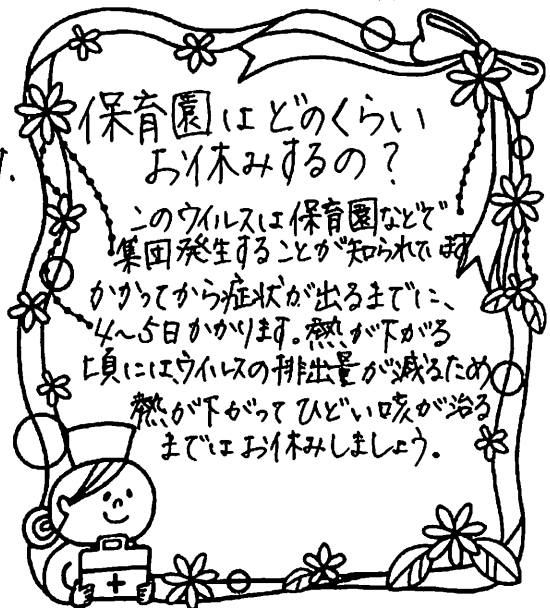 保育園はどのくらい
お休みするの？
このウイルスは保育園などで
集団発生することが知られています
かかってから症状が出るまでに、
4～5日かかります。熱が下がる
頃には、ウイルスの排出量が減るため
熱が下がってひどい咳が治る
まではお休みしましょう。